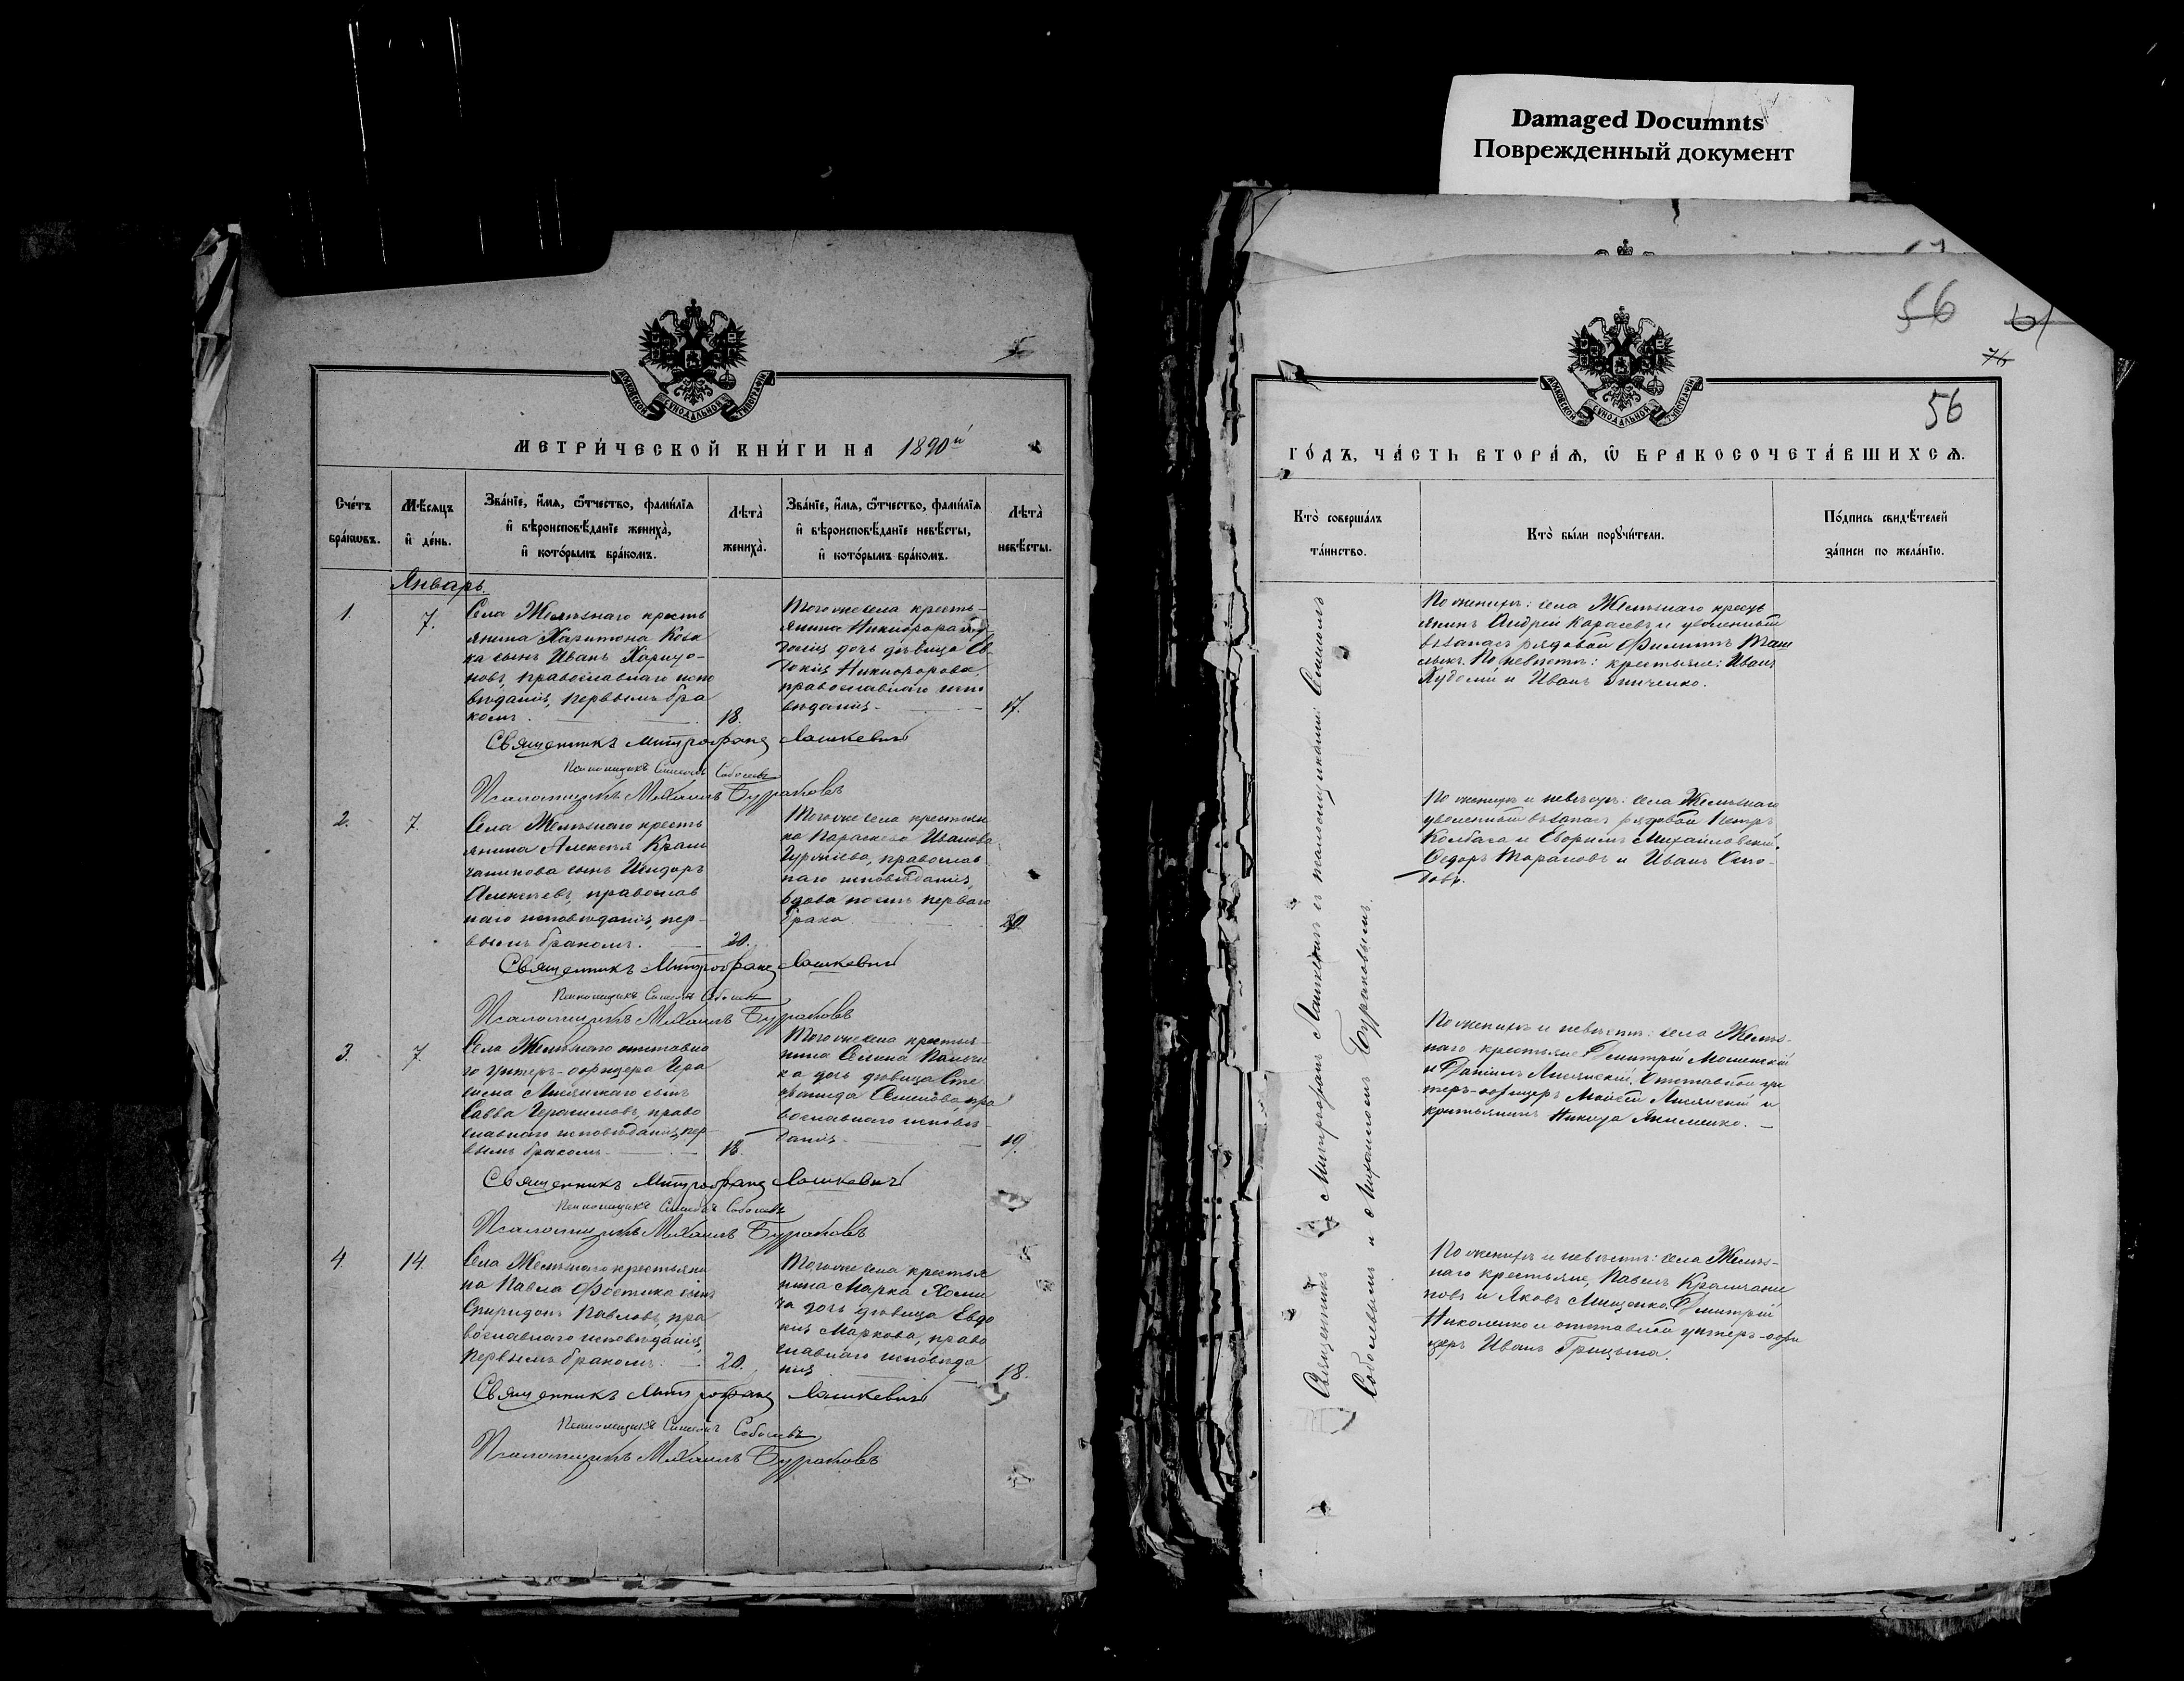 Damaged Documnts
Поврежденный документ
МЕТРИ́ЧЕСКОЙ КНИ́ГИ НА 1890й
Сче́тъ бра́кѡвъ.
Мѣ́сяцъ и҆ де́нь.
Зва́нїе, и҆́мя, ѻ҆́тчество, фами́лїя
и҆ вѣроисповѣ́данїе жениха̀,
и҆ кото́рымъ бра́комъ.
Лѣта̀ жениха̀.
Зва́нїе, и҆́мя, ѻ҆́тчество, фами́лїя
и҆ вѣроисповѣ́данїе невѣ́сты,
и҆ кото́рымъ бра́комъ.
Лѣта̀ невѣ́сты.
Январь.
1.
7.
Села Желѣзнаго кресть
янина Харитона Коза
ка сынъ Иванъ Харито-
новъ, православнаго испо
вѣданія, первымъ бра
комъ.
18.
Того же села кресть-
янина Никифора
дочь дѣвица Ев-
докія Никифорова,
православнаго испо
вѣданія.
17.
Священникъ Митрофанъ Лашкевичъ
Псаломщикъ Симеонъ Соболевъ
Псаломщикъ Михаилъ Бураковъ
2.
7.
Села Желѣзнаго кресть
янина Алексѣя Крам
чанинова сынъ Исидоръ
Алексѣевъ, православ
наго исповѣданія, пер-
вымъ бракомъ.
20.
Того же села крестьян
ка Параскева Иванова
православ-
наго исповѣданія,
вдова послѣ перваго
брака.
20
Священникъ Митрофанъ Лашкевичъ
Псаломщикъ Симеонъ Соболевъ
Псаломщикъ Михаилъ Бураковъ
3.
7.
Села Желѣзнаго отставна
го унтеръ-офицера Гера
сима Лисянскаго сынъ
Савва Герасимовъ, право
славнаго исповѣданія, пер-
вымъ бракомъ.
18.
Того же села крестья-
нина Семена
ка дочь дѣвица Сте
фанида Семенова, пра
вославнаго исповѣ-
данія.
19.
Священникъ Митрофанъ Лашкевичъ
Псаломщикъ Симеонъ Соболевъ
Псаломщикъ Михаилъ Бураковъ
4
14.
Села Желѣзнаго крестьяни
на Павла Фостика сынъ
Спиридонъ Павловъ, пра
вославнаго исповѣданія,
первымъ бракомъ.
20.
Того же села крестья
нина Марка Хоми
ча дочь дѣвица Евдо
кія Маркова, право
славнаго исповѣда
нія
18.
Священникъ Митрофанъ Лашкевичъ
Псаломщикъ Симеонъ Соболевъ
Псаломщикъ Михаилъ Бураковъ
56
61
76
56
ГО́ДЪ, ЧА́СТЬ ВТОРА́Я, Ѽ БРАКОСОЧЕТА́ВШИХСЯ.
Кто̀ соверша́лъ та́инство.
Кто̀ бы́ли порꙋчи́тели.
По́дпись свидѣ́телей за́писи по жела́нїю.
Священникъ Митрофанъ Лашкевичъ съ псаломщиками: Симеономъ
Соболевымъ и Михаиломъ Бураковымъ.
По женихѣ: села Желѣзнаго кресть
янинъ Андрей Карасевъ и уволенный
въ запасъ рядовой Филиппъ Таш
лыкъ. По невѣстѣ: крестьяне: Иванъ
и Иванъ
По женихѣ и невѣстѣ: села Желѣзнаго
уволенный въ запасъ рядовой Петръ
Колбаса и Евфимъ Михайловскій,
Ѳедоръ Тарановъ и Иванъ
По женихѣ и невѣстѣ: села Желѣз-
наго крестьяне Дмитрій
и Даніилъ Лисянскій. Отставной ун
теръ-офицеръ Моисей Лисянскій и
крестьянинъ Никита Акименко.
По женихѣ и невѣстѣ: села Желѣз-
наго крестьяне, Павелъ Крамчани
новъ и Яковъ Мищенко. Дмитрій
Николенко и отставной унтеръ-офи
церъ Иванъ Грицына.